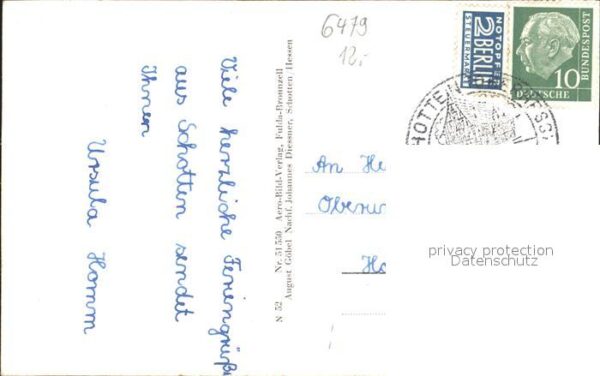 6479
12.-
Viele herzliche Feriengrüße
aus Schotten sendet
Ihnen
Ursula Homm
N 52 Nr. 51550 Aero-Bild-Verlag, Fulda-Bronnzell
August Göbel Nachf. Johannes Diessner, Schotten/Hessen
NOTOPFER
2 BERLIN
STEUERMARKE
DEUTSCHE
BUNDESPOST
10
An He
Ho
privacy protection
Datenschutz